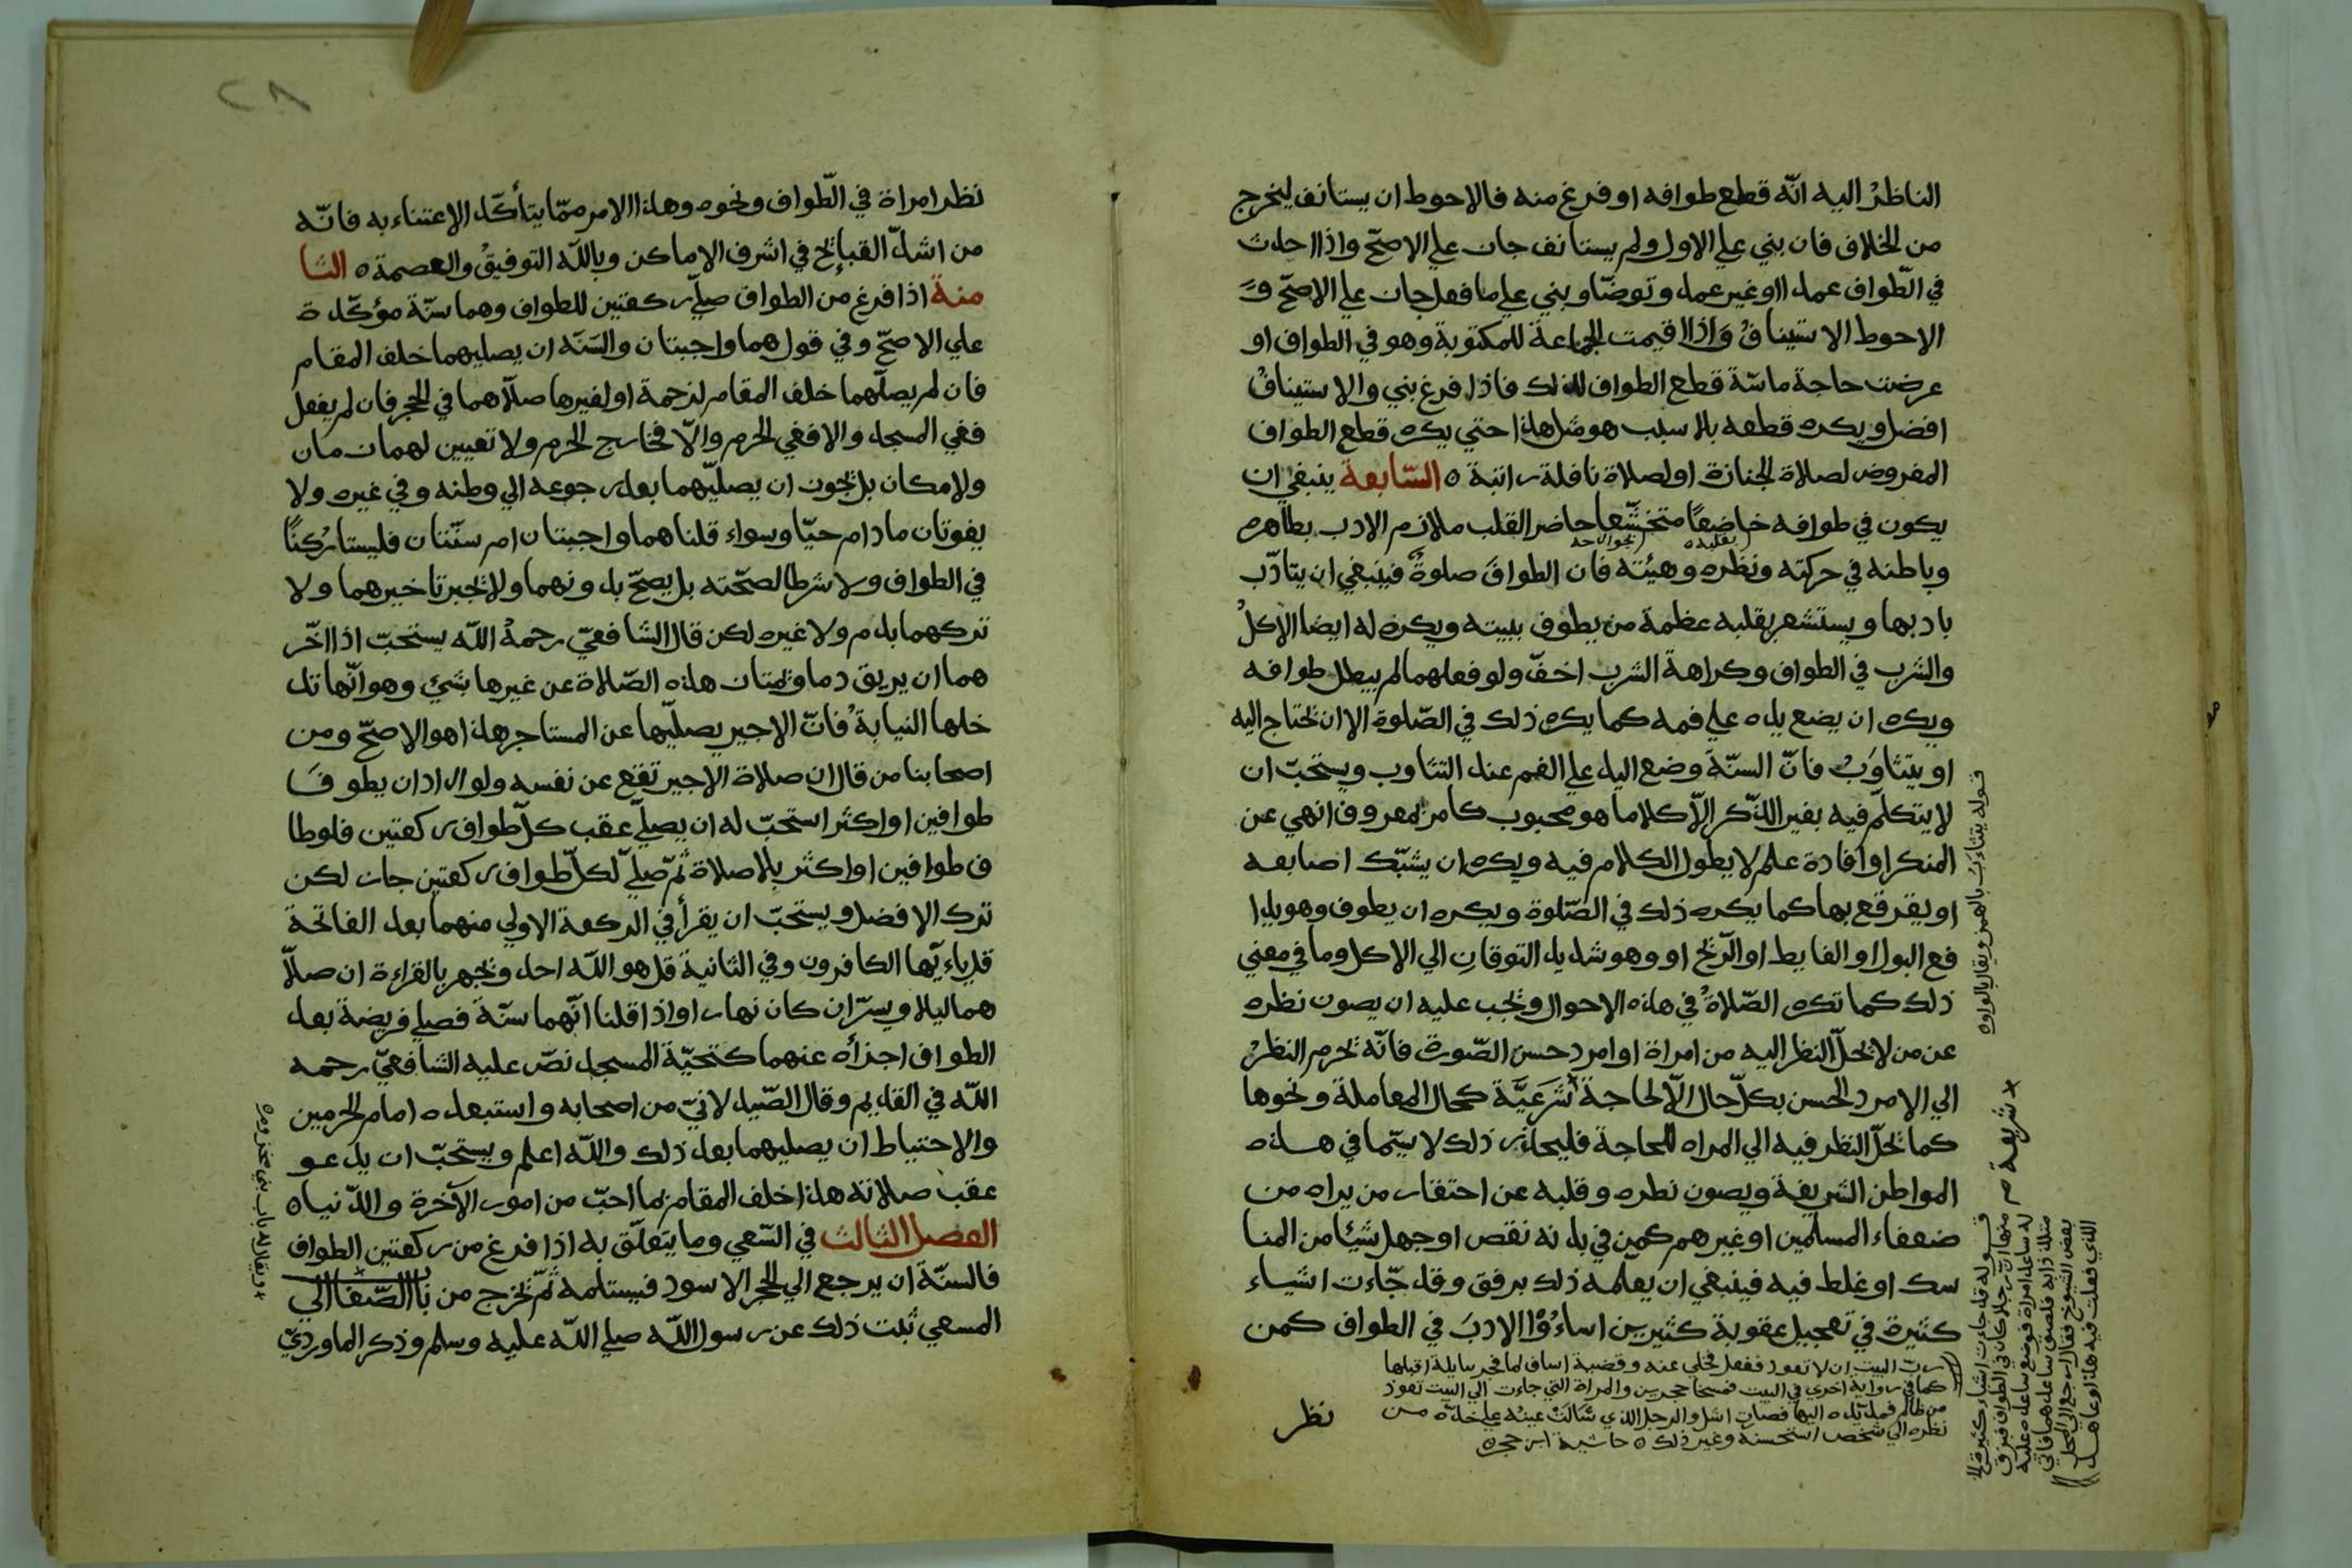 الناظرُ اليه انّه قطع طوافه او فرغ منه فالاحوط ان يستانف ليخرج
من الخلاف فان بني علي الاول ولم يستانف جاز علي الاصحّ واذا احدث
في الطّواف عمدا او غير عمد وتوضّا وبني علي ما فعل جاز علي الاصحّ و
الاحوط الاستيناف واذا اقيمت الجماعة للمكتوبة وهو في الطواف او
عرضت حاجة ماسّة قطع الطواف لذلك فاذا فرغ بني والاستينافُ
افضل ويكره قطعه بلا سبب هو مثل هذا حتي يكره قطع الطواف
المفروض لصلاة الجنازة او لصلاة نافلة راتبة ٥ السّابعة ينبغي ان
يكون في طوافه خاضعًا متخشّعا حاضر القلب ملازم الادب بظاهره
وباطنه في حركته ونظره وهيئته فان الطوافَ صلوةٌ فينبغي ان يتادّب
بادبها ويستشعر بقلبه عظمة من يطوف ببيته ويكره له ايضا الاكلُ
والشرب في الطواف وكراهة الشرب اخفّ ولو فعلهما لم يبطل طوافه
ويكره ان يضع يده علي فمه كما يكره ذلك في الصّلوة الا ان يحتاج اليه
او يتثاوَبُ فانّ السنّة وضع اليد علي الفم عند التثاوب ويستحبّ ان
لا يتكلّم فيه بغير الذّكر الّا كلاما هو محبوب كامر بمعروف او نهي عن
المنكر او افادة علم لا يطول الكلام فيه ويكره ان يشبّك اصابعه
او يفرقع بها كما يكره ذلك في الصّلوة ويكره ان يطوف وهو يدا
فع البول او الغايط او الرّيح او وهو شديد التوقان الي الاكل وما في معني
ذلك كما تكره الصّلاةُ في هذه الاحوال ويجب عليه ان يصون نظره
عن من لا يحلّ النظر اليه من امراة او امرد حسن الصّورة فانّه يحرم النظرُ
الي الامرد الحسن بكلّ حال الّا لحاجة شَرعَيَّة كحال المعاملة ونحوها
كما يحلّ النظر فيه الي المراه للحاجة فليحذر ذلك لا سيّما في هذه
المواطن الشريفة ويصون نطره وقلبه عن احتقار من يراه من
ضعفاء المسلمين او غيرهم كمن في بدنه نقص او جهل شيئا من المنا
سك او غلط فيه فينبغي ان يعلّمه ذلك برفق وقد جّاءت اشياء
كثيرة في تعجيل عقوبة كثيرين اساءُوْا الادبَ في الطواف كمن
ربّ البيت ان لا تعود ففعل فخلي عنه وقضية اساف لما فجر بنايلة اقبلها
كما في رواية اخري في البيت فمسخا حجرين والمراة التي جاءت الي البيت تعوذ
من ظالم فمدّ يده اليها فصار اشل والرجل الذي سَالَتْ عينُه علي خدّه من
نظره الي شخص استحسنه وغير ذلك ٥ حاشية ابن حجر ٥
نظر
قوله يتثاءَبُ بالهمز ويقال بالواو٥
شريعة
قوله قد جاءت اشياء كثيرة الخ
منها انّ رجلا كان في الطواف فبرق
له ساعد امراة فوضع ساعده عليه
متلذذا به فلصق ساعدهما فاتي
بعض الشيوخ فقال ارجع الي المحل
الذي فعلت فيه هذا وعاهد
٢٨
نظر امراة في الّطواف ونحوه وهذا الامر ممّا يتأكّد الاعتناء به فانّه
من اشدّ القبايح في اشرف الاماكن وباللّه التوفيقُ والعصمة ٥ الثا
منة اذا فرغ من الطواف صلّي ركعتين للطواف وهما سنّة مؤكّدة
علي الاصحّ وفي قول هما واجبتان والسّنّه ان يصليهما خلف المقام
فان لم يصلّهما خلف المقام لزحمة او لغيرها صلّاهما في الحجر فان لم يفعل
ففي المسجد والا ففي الحرم والّا فخارج الحرم ولا تعيين لهما زمان
ولا مكان بل يجوز ان يصليّهما بعد رجوعه الي وطنه وفي غيره ولا
يفوتان ما دام حيّا وسواء قلنا هما واجبتان ام سنّتان فليستا رُكنًا
في الطواف ولا شرطا لصحّته بل يصحّ بدونهما ولا يجبر تاخيرهما ولا
تركهما بدم ولا غيره لكن قال الشافعيّ رحمهُ اللّه يستحبّ اذا اخّر
هما ان يريق دما وتمتاز هذه الصّلاة عن غيرها بشيٍ وهو انّها تد
خلها النيابةُ فانّ الاجير يصليّها عن المستاجر هذا هو الاصحّ ومن
اصحابنا من قال ان صلاة الاجير تقع عن نفسه ولو اراد ان يطوفَ
طوافين او اكثر استحبّ له ان يصلّي عقب كلّ طواف ركعتين فلو طا
ف طوافين او اكثر بلا صلاة ثمّ صلّي لكلّ طواف ركعتين جاز لكن
ترك الافضل ويستحبّ ان يقرأ في الركعة الاولي منهما بعد الفاتحة
قل ياءيّها الكافرون وفي الثانية قل هو اللّه احد ويجهر بالقراءة ان صلّا
هما ليلا ويسرّ ان كان نهارا واذا قلنا انّهما سنّة فصلي فريضة بعد
الطواف اجزأه عنهما كتحيّة المسجد نصّ عليه الشافعيّ رحمه
اللّه في القديم وقال الصّيدلانيّ من اصحابه واستبعده امام الحرمين
والاحتياط ان يصليهما بعد ذلك واللّه اعلم ويستحبّ ان يدعو
عقب صلاته هذا خلف المقام بما احبّ من امور الآخرة والدّنيا٥
الفصل الثالث في السّعي وما يتعلّق به اذا فرغ من ركعتين الطواف
فالسنّة ان يرجع الي الحجر الاسود فيستلمه ثمّ يخرج من باب الصّفا الي
المسعي ثبت ذلك عن رسول اللّه صلي اللّه عليه وسلم وذكر الماورديّ
ويقال له باب بني مخزوم٥